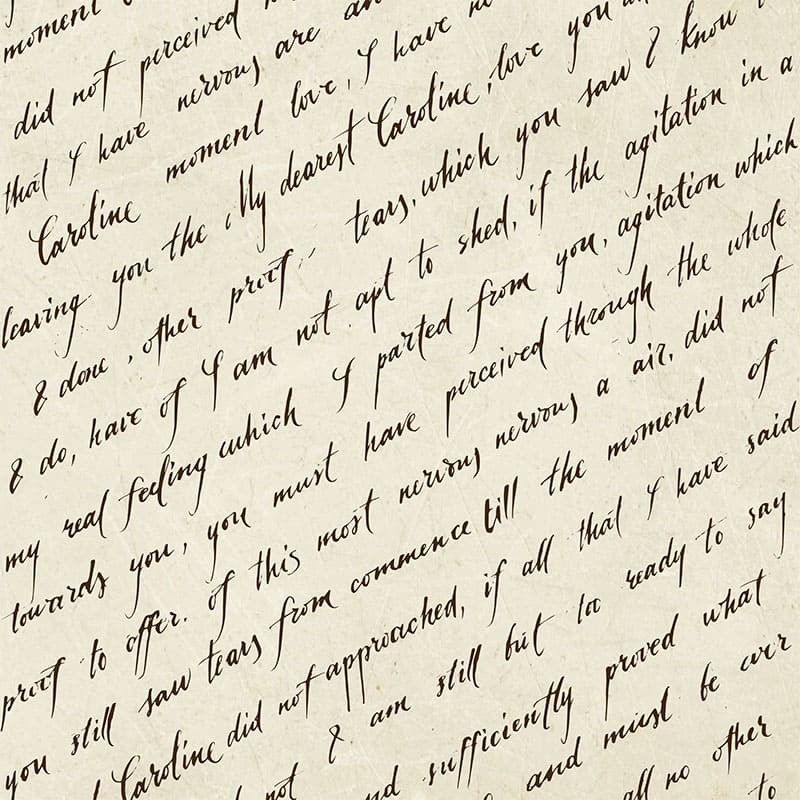 moment
did not perceived
that I have nervous are an
Caroline moment love, I have
leaving you the My dearest Caroline, love you
& done, other proof tears, which you saw & know
& do, have of I am not apt to shed, if the agitation in a
my real feeling which I parted from you, agitation which
towards you, you must have perceived through the whole
proof to offer. of this most nervous nervous a air, did not
you still saw tears from commence till the moment of
Caroline did not approached, if all that I have said
not & am still but too ready to say
nd sufficiently proved what
and must be ever
all no other
to